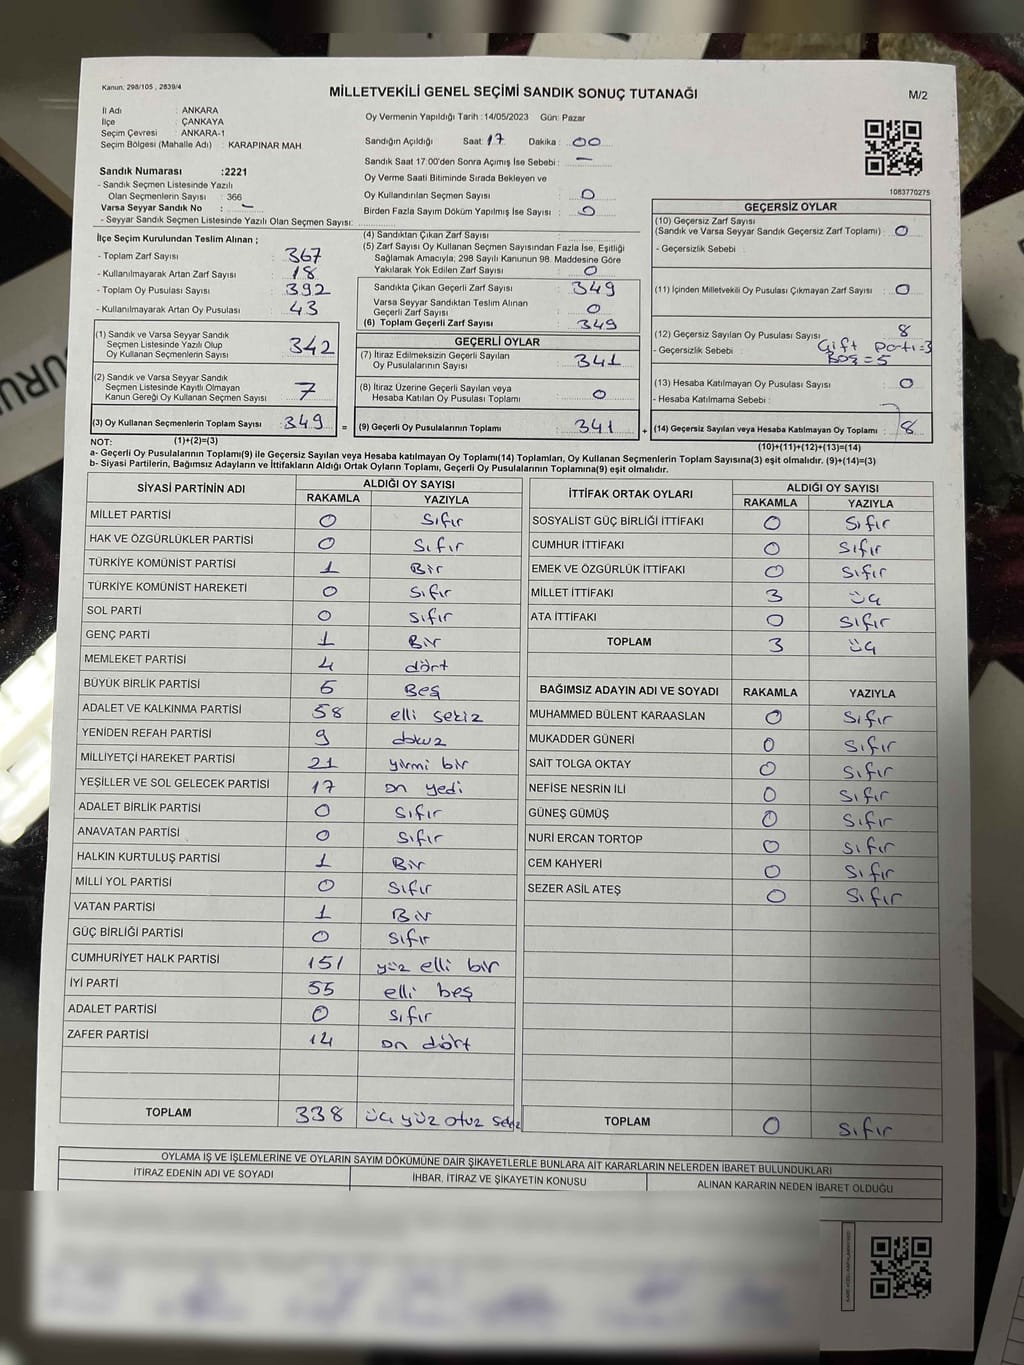 Kanun, 298/105 , 2839/4
MİLLETVEKİLİ GENEL SEÇİMİ SANDIK SONUÇ TUTANAĞI
M/2
İl Adı : ANKARA
İlçe : ÇANKAYA
Seçim Çevresi : ANKARA-1
Seçim Bölgesi (Mahalle Adı) : KARAPINAR MAH.
Sandık Numarası :2221
- Sandık Seçmen Listesinde Yazılı
Olan Seçmenlerin Sayısı : 366
Varsa Seyyar Sandık No : -
- Seyyar Sandık Seçmen Listesinde Yazılı Olan Seçmen Sayısı:
Oy Vermenin Yapıldığı Tarih :14/05/2023 Gün: Pazar
Sandığın Açıldığı Saat: 17 Dakika : 00
Sandık Saat 17:00'den Sonra Açımış İse Sebebi : -
Oy Verme Saati Bitiminde Sırada Bekleyen ve
Oy Kullandırılan Seçmen Sayısı : 0
Birden Fazla Sayım Döküm Yapılmış İse Sayısı : 0
1083770275
İlçe Seçim Kurulundan Teslim Alınan ;
- Toplam Zarf Sayısı : 367
- Kullanılmayarak Artan Zarf Sayısı : 18
- Toplam Oy Pusulası Sayısı : 392
- Kullanılmayarak Artan Oy Pusulası : 43
(1) Sandık ve Varsa Seyyar Sandık
Seçmen Listesinde Yazılı Olup
Oy Kullanan Seçmenlerin Sayısı 342
(2) Sandık ve Varsa Seyyar Sandık
Seçmen Listesinde Kayıtlı Olmayan
Kanun Gereği Oy Kullanan Seçmen Sayısı 7
(3) Oy Kullanan Seçmenlerin Toplam Sayısı 349
(4) Sandıktan Çıkan Zarf Sayısı :
(5) Zarf Sayısı Oy Kullanan Seçmen Sayısından Fazla İse, Eşitliği
Sağlamak Amacıyla; 298 Sayılı Kanunun 98. Maddesine Göre
Yakılarak Yok Edilen Zarf Sayısı : 0
Sandıkta Çıkan Geçerli Zarf Sayısı : 349
Varsa Seyyar Sandıktan Teslim Alınan
Geçerli Zarf Sayısı : 0
(6) Toplam Geçerli Zarf Sayısı : 349
GEÇERLİ OYLAR
(7) İtiraz Edilmeksizin Geçerli Sayılan
Oy Pusulalarının Sayısı : 341
(8) İtiraz Üzerine Geçerli Sayılan veya
Hesaba Katılan Oy Pusulası Toplamı : 0
= (9) Geçerli Oy Pusulalarının Toplamı : 341
GEÇERSİZ OYLAR
(10) Geçersiz Zarf Sayısı
(Sandık ve Varsa Seyyar Sandık Geçersiz Zarf Toplamı) : 0
- Geçersizlik Sebebi :
(11) İçinden Milletvekili Oy Pusulası Çıkmayan Zarf Sayısı : 0
(12) Geçersiz Sayılan Oy Pusulası Sayısı : 8
- Geçersizlik Sebebi : Çift parti=3
Boş = 5
(13) Hesaba Katılmayan Oy Pusulası Sayısı : 0
- Hesaba Katılmama Sebebi :
+ (14) Geçersiz Sayılan veya Hesaba Katılmayan Oy Toplamı : 8
NOT: (1)+(2)=(3) (10)+(11)+(12)+(13)=(14)
a- Geçerli Oy Pusulalarının Toplamı(9) ile Geçersiz Sayılan veya Hesaba Katılmayan Oy Toplamı(14) Toplamları, Oy Kullanan Seçmenlerin Toplam Sayısına(3) eşit olmalıdır. (9)+(14)=(3)
b- Siyasi Partilerin, Bağımsız Adayların ve İttifakların Aldığı Ortak Oyların Toplamı, Geçerli Oy Pusulalarının Toplamına(9) eşit olmalıdır.
SİYASİ PARTİNİN ADI ALDIĞI OY SAYISI
RAKAMLA YAZIYLA
MİLLET PARTİSİ 0 Sıfır
HAK VE ÖZGÜRLÜKLER PARTİSİ 0 Sıfır
TÜRKİYE KOMÜNİST PARTİSİ 1 Bir
TÜRKİYE KOMÜNİST HAREKETİ 0 Sıfır
SOL PARTİ 0 Sıfır
GENÇ PARTİ 1 Bir
MEMLEKET PARTİSİ 4 dört
BÜYÜK BİRLİK PARTİSİ 5 Beş
ADALET VE KALKINMA PARTİSİ 58 elli sekiz
YENİDEN REFAH PARTİSİ 9 dokuz
MİLLİYETÇİ HAREKET PARTİSİ 21 yirmi bir
YEŞİLLER VE SOL GELECEK PARTİSİ 17 on yedi
ADALET BİRLİK PARTİSİ 0 Sıfır
ANAVATAN PARTİSİ 0 Sıfır
HALKIN KURTULUŞ PARTİSİ 1 Bir
MİLLİ YOL PARTİSİ 0 Sıfır
VATAN PARTİSİ 1 Bir
GÜÇ BİRLİĞİ PARTİSİ 0 Sıfır
CUMHURİYET HALK PARTİSİ 151 yüz elli bir
İYİ PARTİ 55 elli beş
ADALET PARTİSİ 0 Sıfır
ZAFER PARTİSİ 14 on dört
TOPLAM 338 üç yüz otuz sekiz
İTTİFAK ORTAK OYLARI ALDIĞI OY SAYISI
RAKAMLA YAZIYLA
SOSYALİST GÜÇ BİRLİĞİ İTTİFAKI 0 Sıfır
CUMHUR İTTİFAKI 0 Sıfır
EMEK VE ÖZGÜRLÜK İTTİFAKI 0 Sıfır
MİLLET İTTİFAKI 3 üç
ATA İTTİFAKI 0 Sıfır
TOPLAM 3 üç
BAĞIMSIZ ADAYIN ADI VE SOYADI RAKAMLA YAZIYLA
MUHAMMED BÜLENT KARAASLAN 0 Sıfır
MUKADDER GÜNERİ 0 Sıfır
SAİT TOLGA OKTAY 0 Sıfır
NEFİSE NESRİN İLİ 0 Sıfır
GÜNEŞ GÜMÜŞ 0 Sıfır
NURİ ERCAN TORTOP 0 Sıfır
CEM KAHYERİ 0 Sıfır
SEZER ASİL ATEŞ 0 Sıfır
TOPLAM 0 Sıfır
OYLAMA İŞ VE İŞLEMLERİNE VE OYLARIN SAYIM DÖKÜMÜNE DAİR ŞİKAYETLERLE BUNLARA AİT KARARLARIN NELERDEN İBARET BULUNDUKLARI
İTİRAZ EDENİN ADI VE SOYADI İHBAR, İTİRAZ VE ŞİKAYETİN KONUSU ALINAN KARARIN NEDEN İBARET OLDUĞU